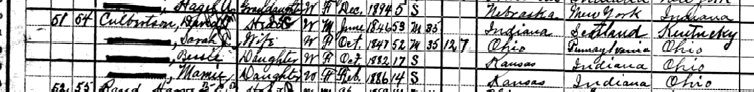 Granddaughter W F Dec. 1894 5 S Nebraska New York Indiana
51 54 Culbertson, David Head W M June 1846 53 M 35 Indiana Scotland Kentucky
Sarah Wife W F Oct. 1847 52 M 35 12 7 Ohio Pennsylvania Ohio
Bessie Daughter W F Oct 1882 17 S Kansas Indiana Ohio
Mamie Daughter W F Feb. 1886 14 S Kansas Indiana Ohio
52 55